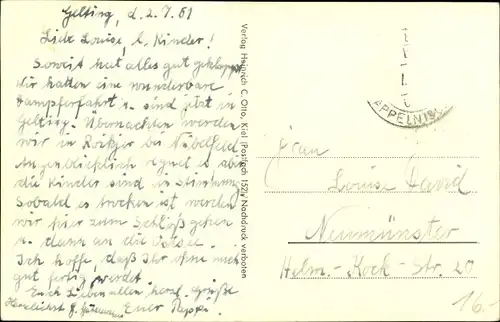 Gelting, d. 2.7.61
Liebe Louise, l. Kinder!
Soweit hat alles gut geklappt
Wir hatten eine wunderbare
Dampferfahrt u. sind jetzt in
Gelting. Übernachten werden
wir in bei
Augenblicklich regnet es aber
die Kinder sind in Stimmung
Sobald es trocken ist werden
wir hier zum Schloß gehen
u. dann an die Ostsee.
Ich hoffe, daß Ihr ohne mich
gut fertig werdet.
Euch Lieben allen herzl. Grüße
Euer
Herzlichst
Verlag Heinrich C. Otto, Kiel (Postfach 152) Nachdruck verboten
KAPPELN
Frau
Louise David
Neumünster
Helm.-Kock-Str. 20
16.-